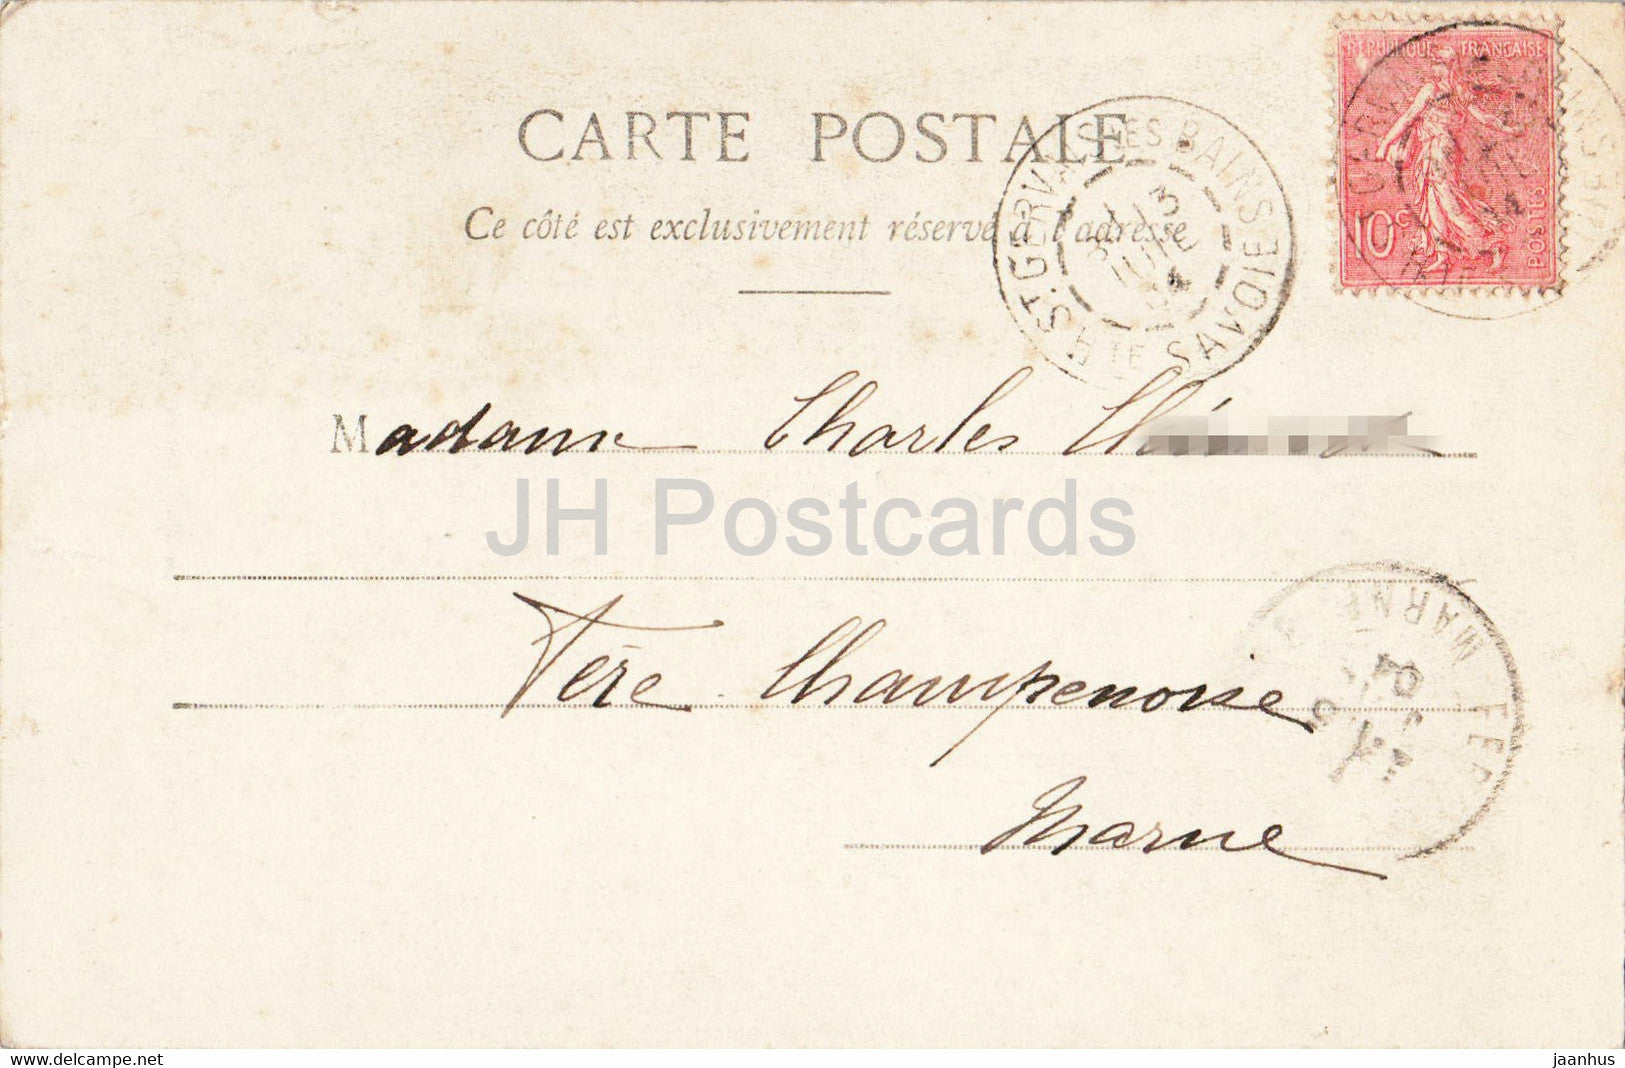 RÉPUBLIQUE FRANÇAISE
10c
POSTES
CARTE POSTALE
Ce côté est exclusivement réservé à l'adresse
ST. GERVAIS LES BAINS
HTE SAVOIE
13
JUIL
04
Madame Charles
JH Postcards
Fère Champenoise
Marne
MARNE
04
delcampe.net
jaanhus